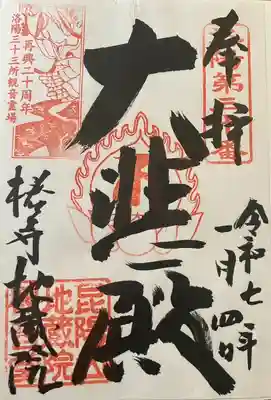 奉拝
洛陽第三十番
令和七年
一月四日
大悲殿
再興二十周年
洛陽三十三所観音霊場
椿寺地蔵院
昆陽山
地蔵院